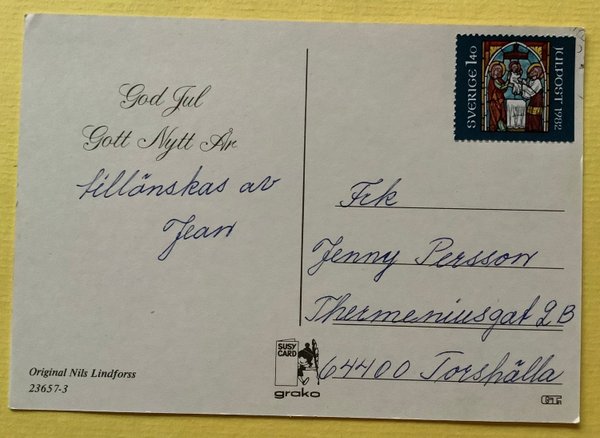 God Jul
Gott Nytt År
tillönskas av
Jean
Original Nils Lindforss
23657-3
SUSY CARD
grako
SVERIGE 140
JULPOST 1982
Frk
Jenny Persson
Thermeniusgat 2 B
64400 Torshälla